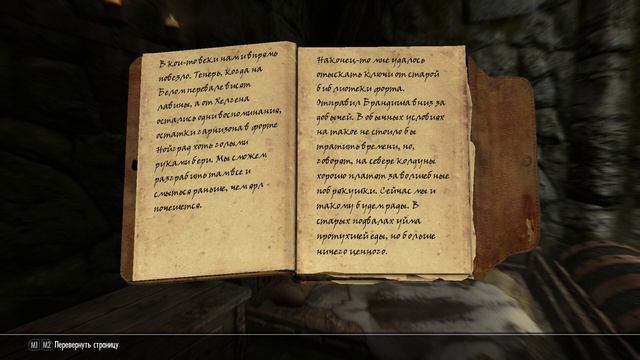 В кои-то веки нам и впрямь
повезло. Теперь, когда на
Белом перевале висят
лавины, а от Хелгена
остались одни воспоминания,
остатки гарнизона в форте
Нойград хоть голыми
руками бери. Мы сможем
разграбить там все и
смыться раньше, чем ярл
почешется.
Наконец-то мне удалось
отыскать ключи от старой
библиотеки форта.
Отправил Брандиша вниз за
добычей. В обычных условиях
на такое не стоило бы
тратить времени, но,
говорят, на севере колдуны
хорошо платят за волшебные
побрякушки. Сейчас мы и
такому будем рады. В
старых подвалах уйма
протухшей еды, но больше
ничего ценного.
M1 M2 Перевернуть страницу